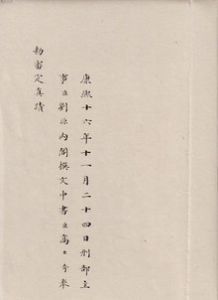 康熙十六年十一月二十四日刑部主
事臣劉源內閣撰文中書臣高士奇奉
勅審定真蹟